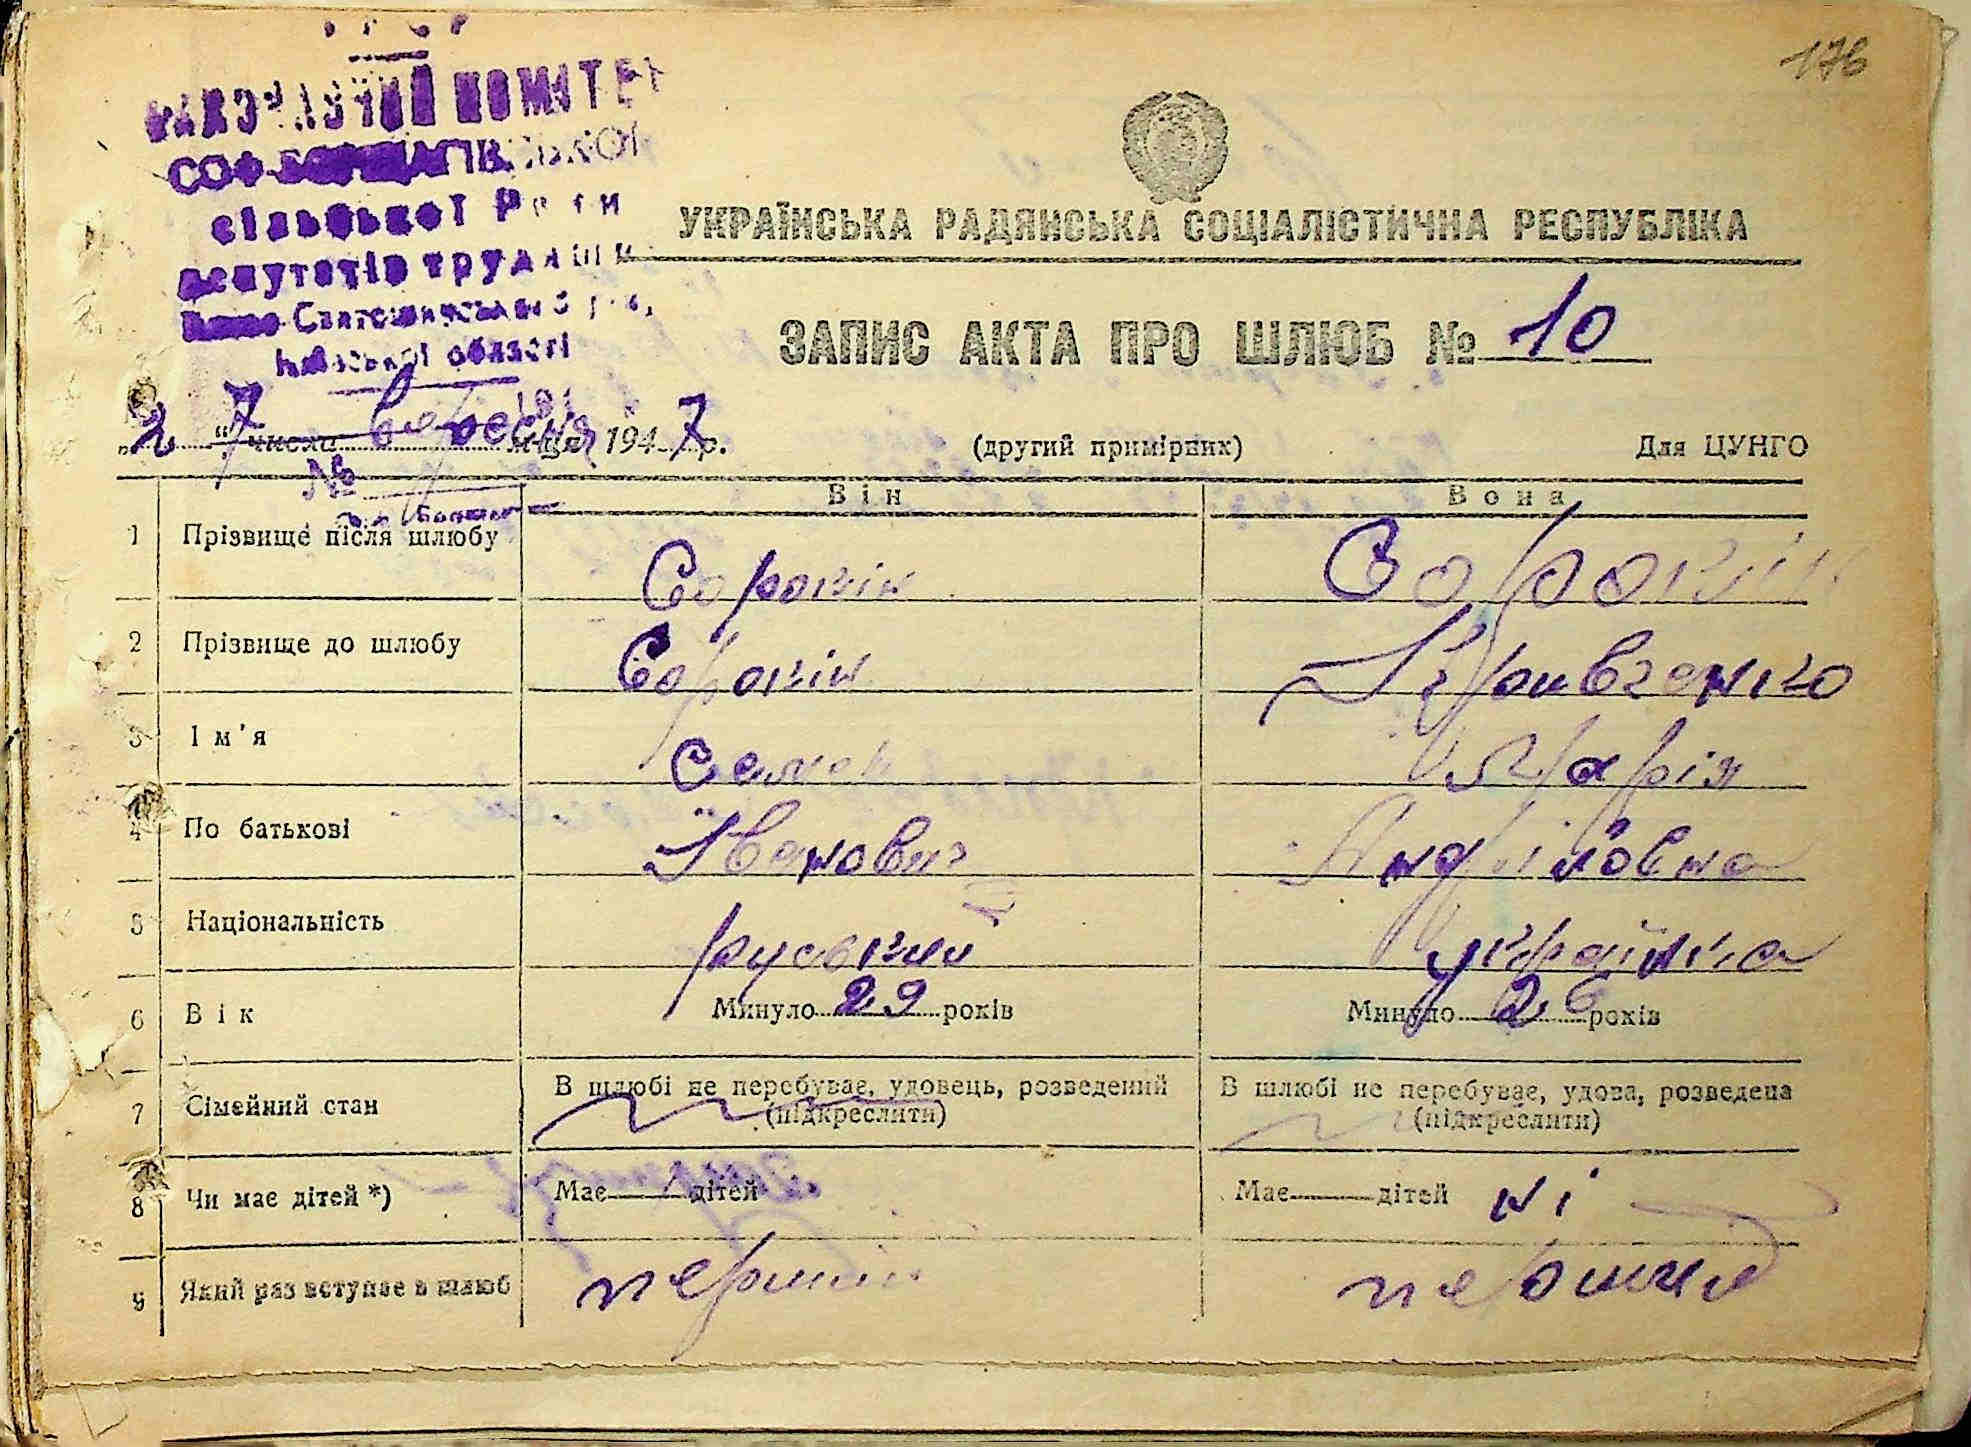 176
УРСР
ВИКОНАВЧИЙ КОМІТЕТ
СОФ-БОРЩАГІВСЬКОЇ
сільської Ради
депутатів трудящих
Києво-Святошинського р-ну,
Київської області
УКРАЇНСЬКА РАДЯНСЬКА СОЦІАЛІСТИЧНА РЕСПУБЛІКА
ЗАПИС АКТА ПРО ШЛЮБ № 10
"27" числа вересня м-ця 1947 р.
№
(другий примірник)
Для ЦУНГО
Він
Вона
1 Прізвище після шлюбу Сорокін Сорокин
2 Прізвище до шлюбу Сорокін Кравченко
3 Ім'я Семен Марія
4 По батькові Іванович Андріївна
5 Національність руський українка
6 Вік Минуло 29 років Минуло 26 років
7 Сімейний стан В шлюбі не перебуває, удовець, розведений (підкреслити) В шлюбі не перебуває, удова, розведена (підкреслити)
8 Чи має дітей *) Має дітей Має дітей ні
9 Який раз вступає в шлюб перший перший